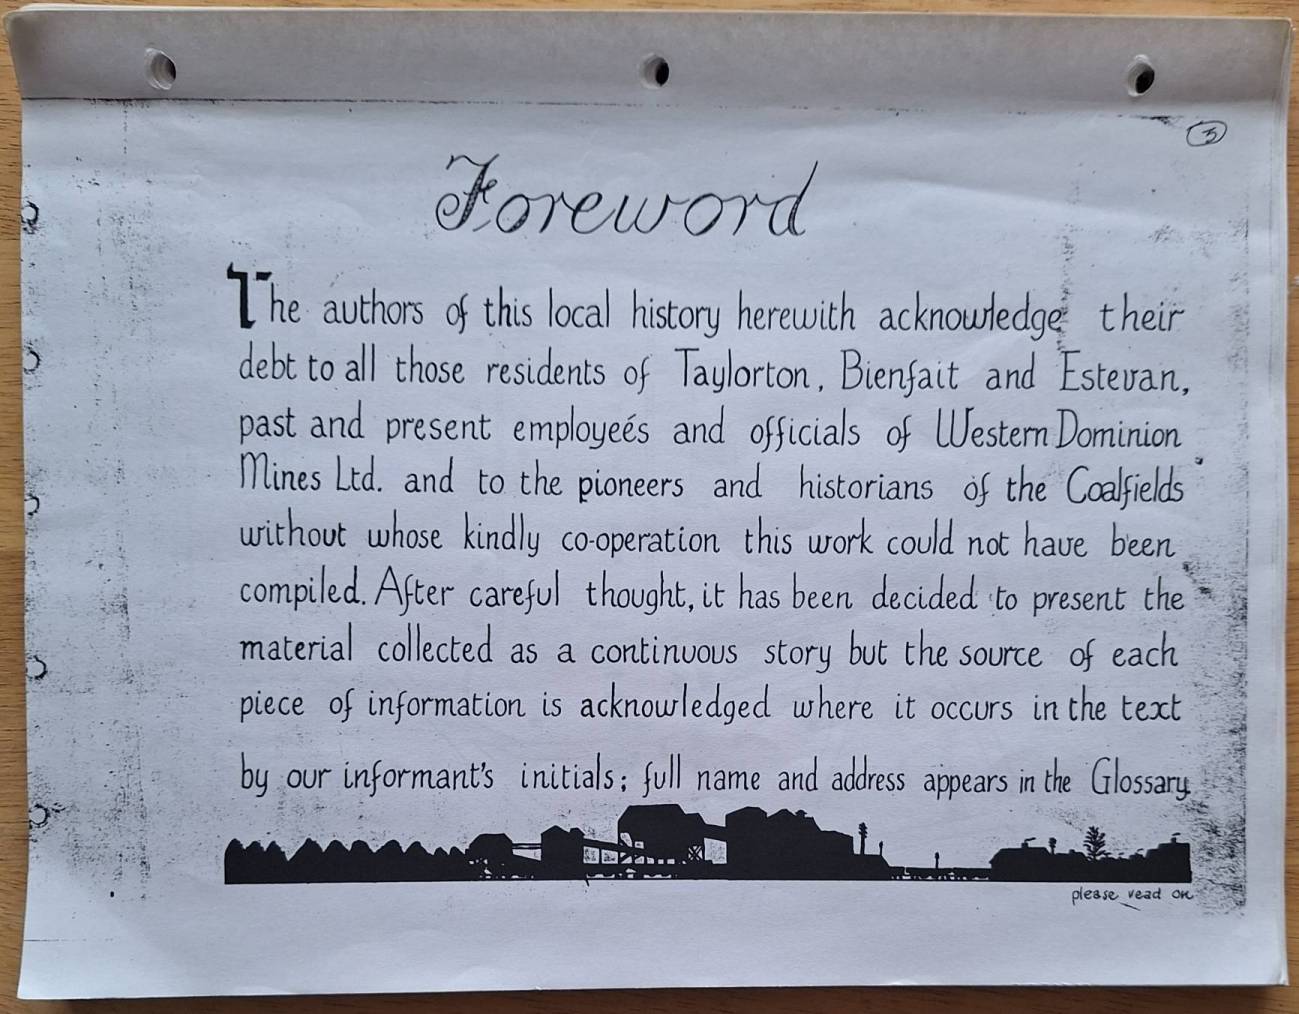 5
Foreword
The authors of this local history herewith acknowledge their
debt to all those residents of Taylorton, Bienfait and Estevan,
past and present employeés and officials of Western Dominion
Mines Ltd. and to the pioneers and historians of the Coalfields
without whose kindly co-operation this work could not have been
compiled. After careful thought, it has been decided to present the
material collected as a continuous story but the source of each
piece of information is acknowledged where it occurs in the text
by our informant's initials; full name and address appears in the Glossary.
please read on